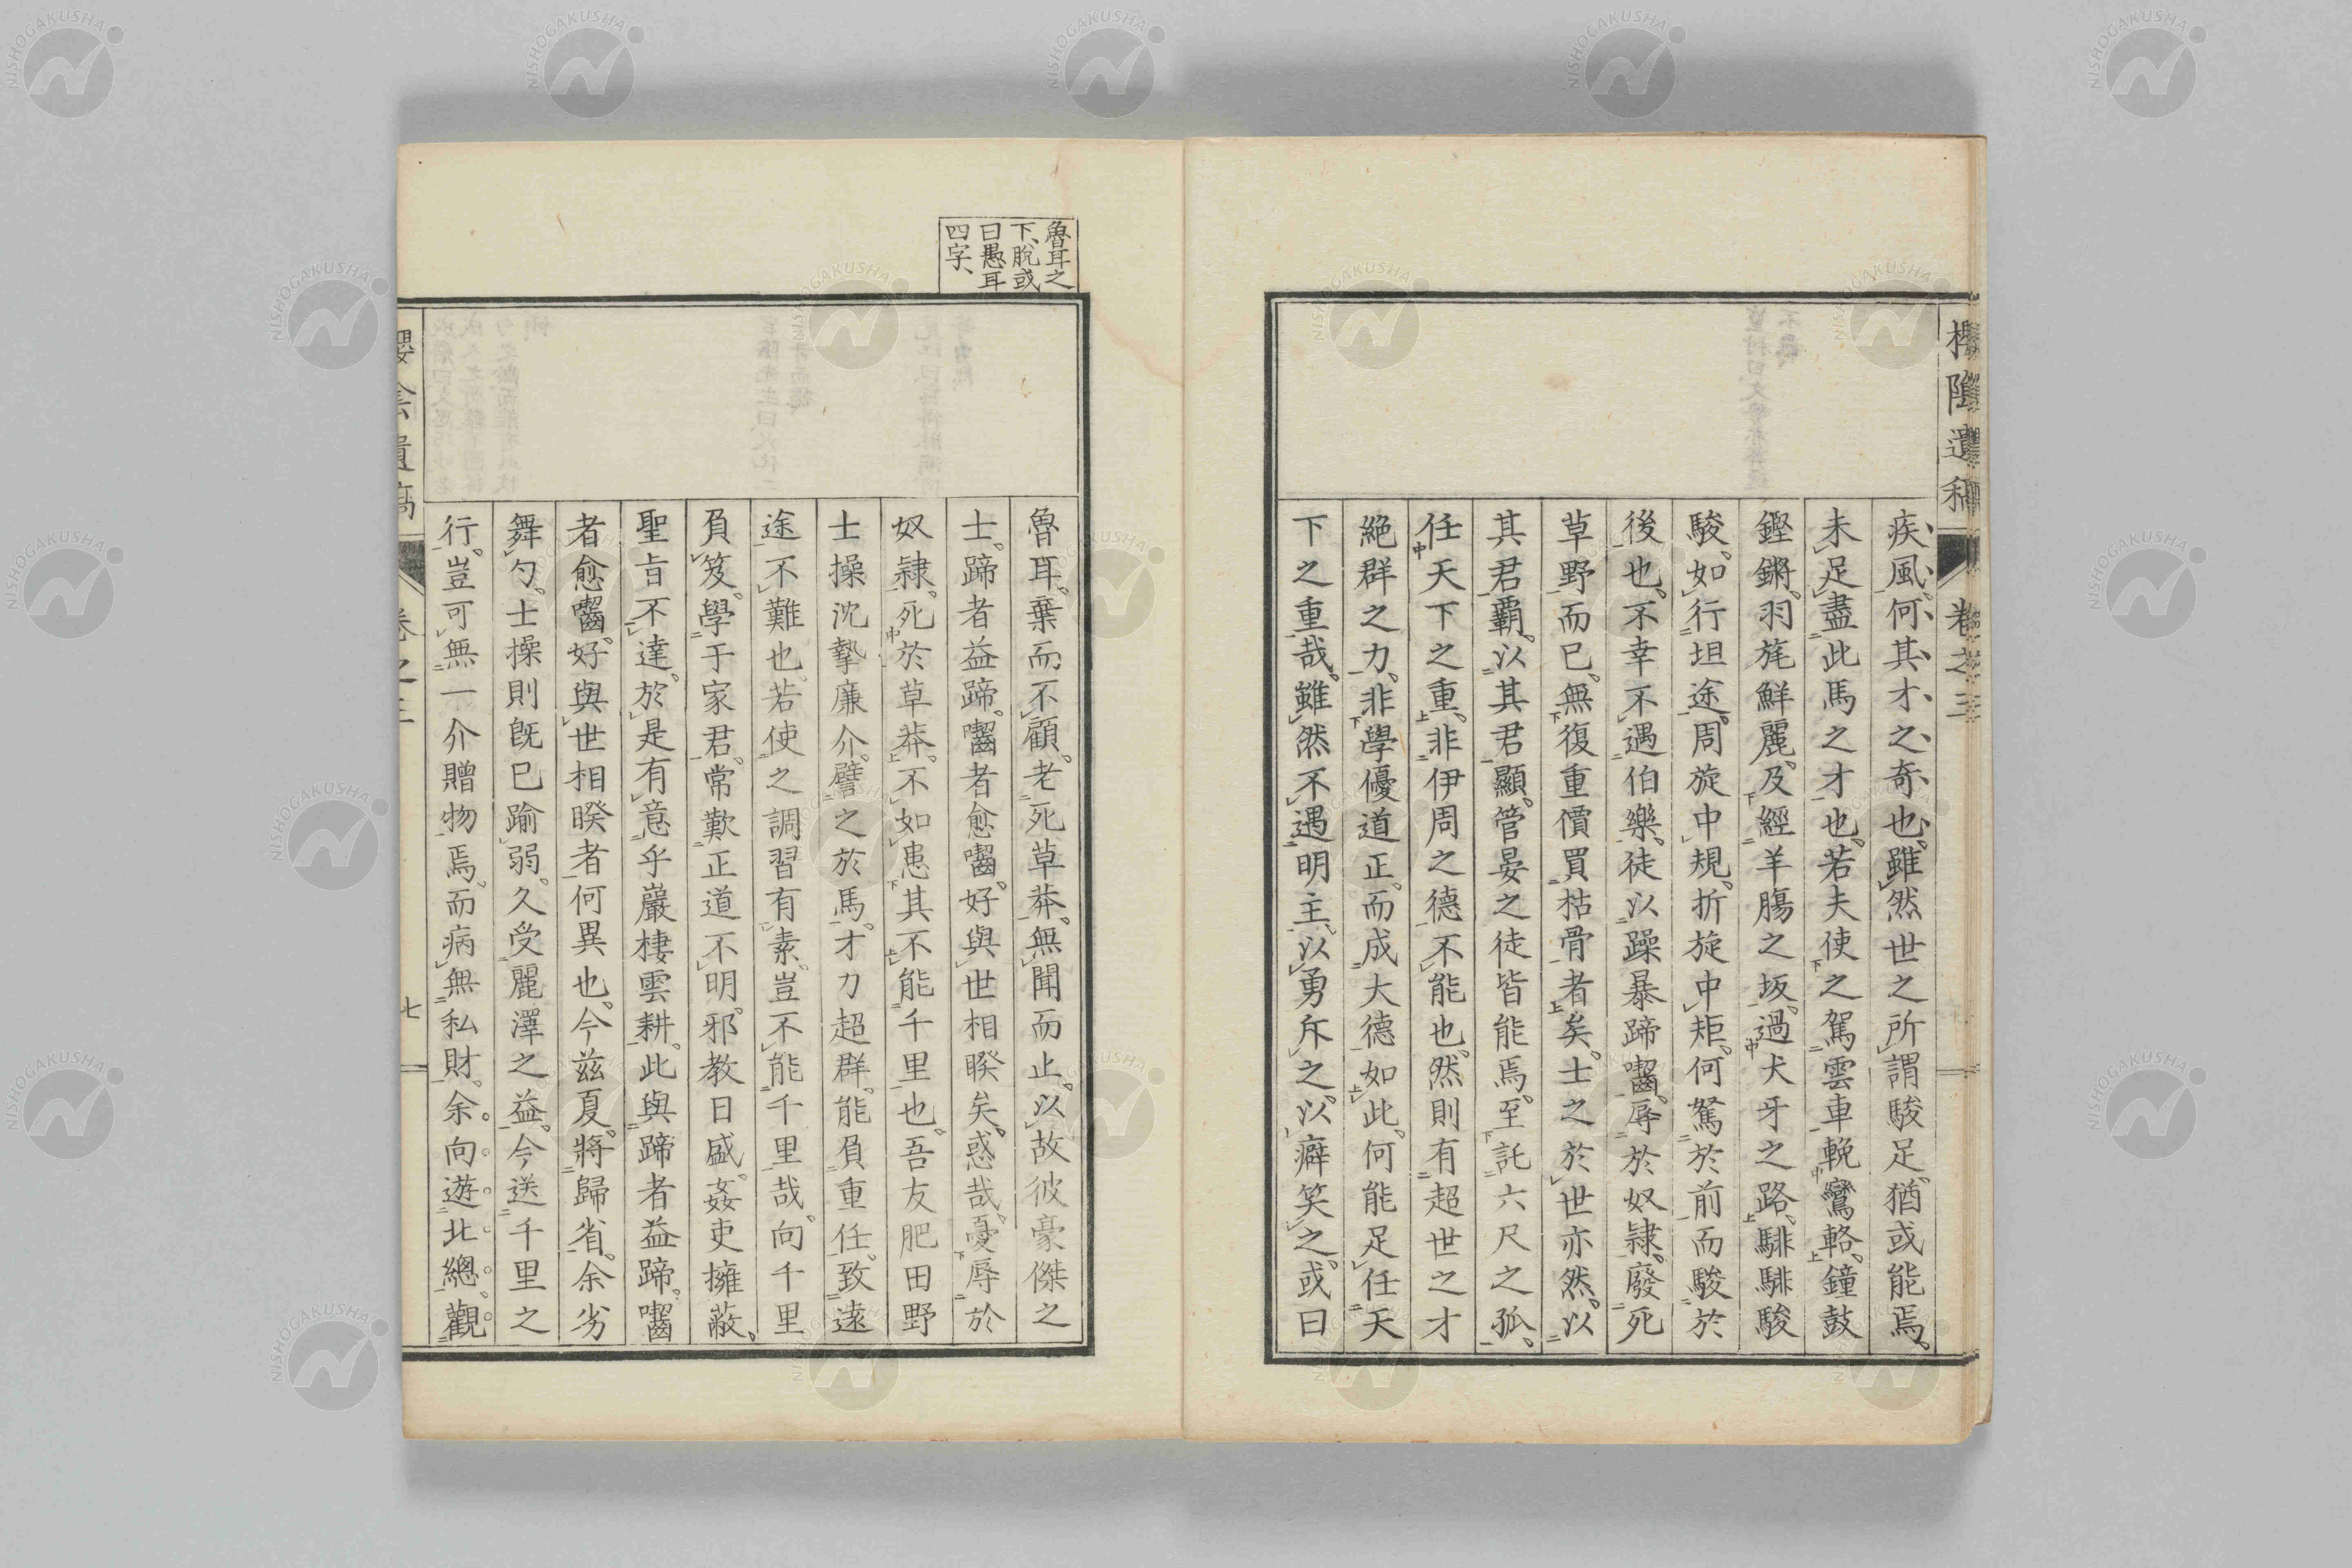 櫻陰遺稿 卷之三
疾風、何其才之奇也、雖然世之所謂駿足、猶或能焉、
未足盡此馬之才也、若夫使之駕雲車輓鸞輅、鐘鼓
鏗鏘、羽旄鮮麗、及經羊腸之坂、過犬牙之路、騑騑駿
駿、如行坦途、周旋中規、折旋中矩、何駑於前而駿於
後也、不幸不遇伯樂、徒以躁暴蹄齧、辱於奴隷、廢死
草野而已、無復重價買枯骨者矣、士之於世亦然、以
其君覇、以其君顯、管晏之徒皆能焉、至託六尺之孤、
任天下之重、非伊周之德、不能也、然則有超世之才
絕群之力、非學優道正、而成大德如此、何能足任天
下之重哉、雖然不遇明主、以勇斥之、以癖笑之、或曰
魯耳之
下、脫或
曰愚耳
四字、
魯耳、棄而不顧、老死草莽、無聞而止、以故彼豪傑之
士、蹄者益蹄、齧者愈齧、好與世相睽矣、惑哉、憂辱於
奴隷、死於草莽、不如患其不能千里也、吾友肥田野
士操沈摯廉介、譬之於馬、才力超群、能負重任、致遠
途、不難也、若使之調習有素、豈不能千里哉、向千里
負笈、學于家君、常歎正道不明、邪教日盛、姦吏擁蔽、
聖旨不達、於是有意乎巖棲雲耕、此與蹄者益蹄、齧
者愈齧、好與世相睽者何異也、今茲夏、將歸省、余劣
舞勺、士操則旣已踰弱、久受麗澤之益、今送千里之
行、豈可無一介贈物焉、而病無私財、余向遊北總、觀
七